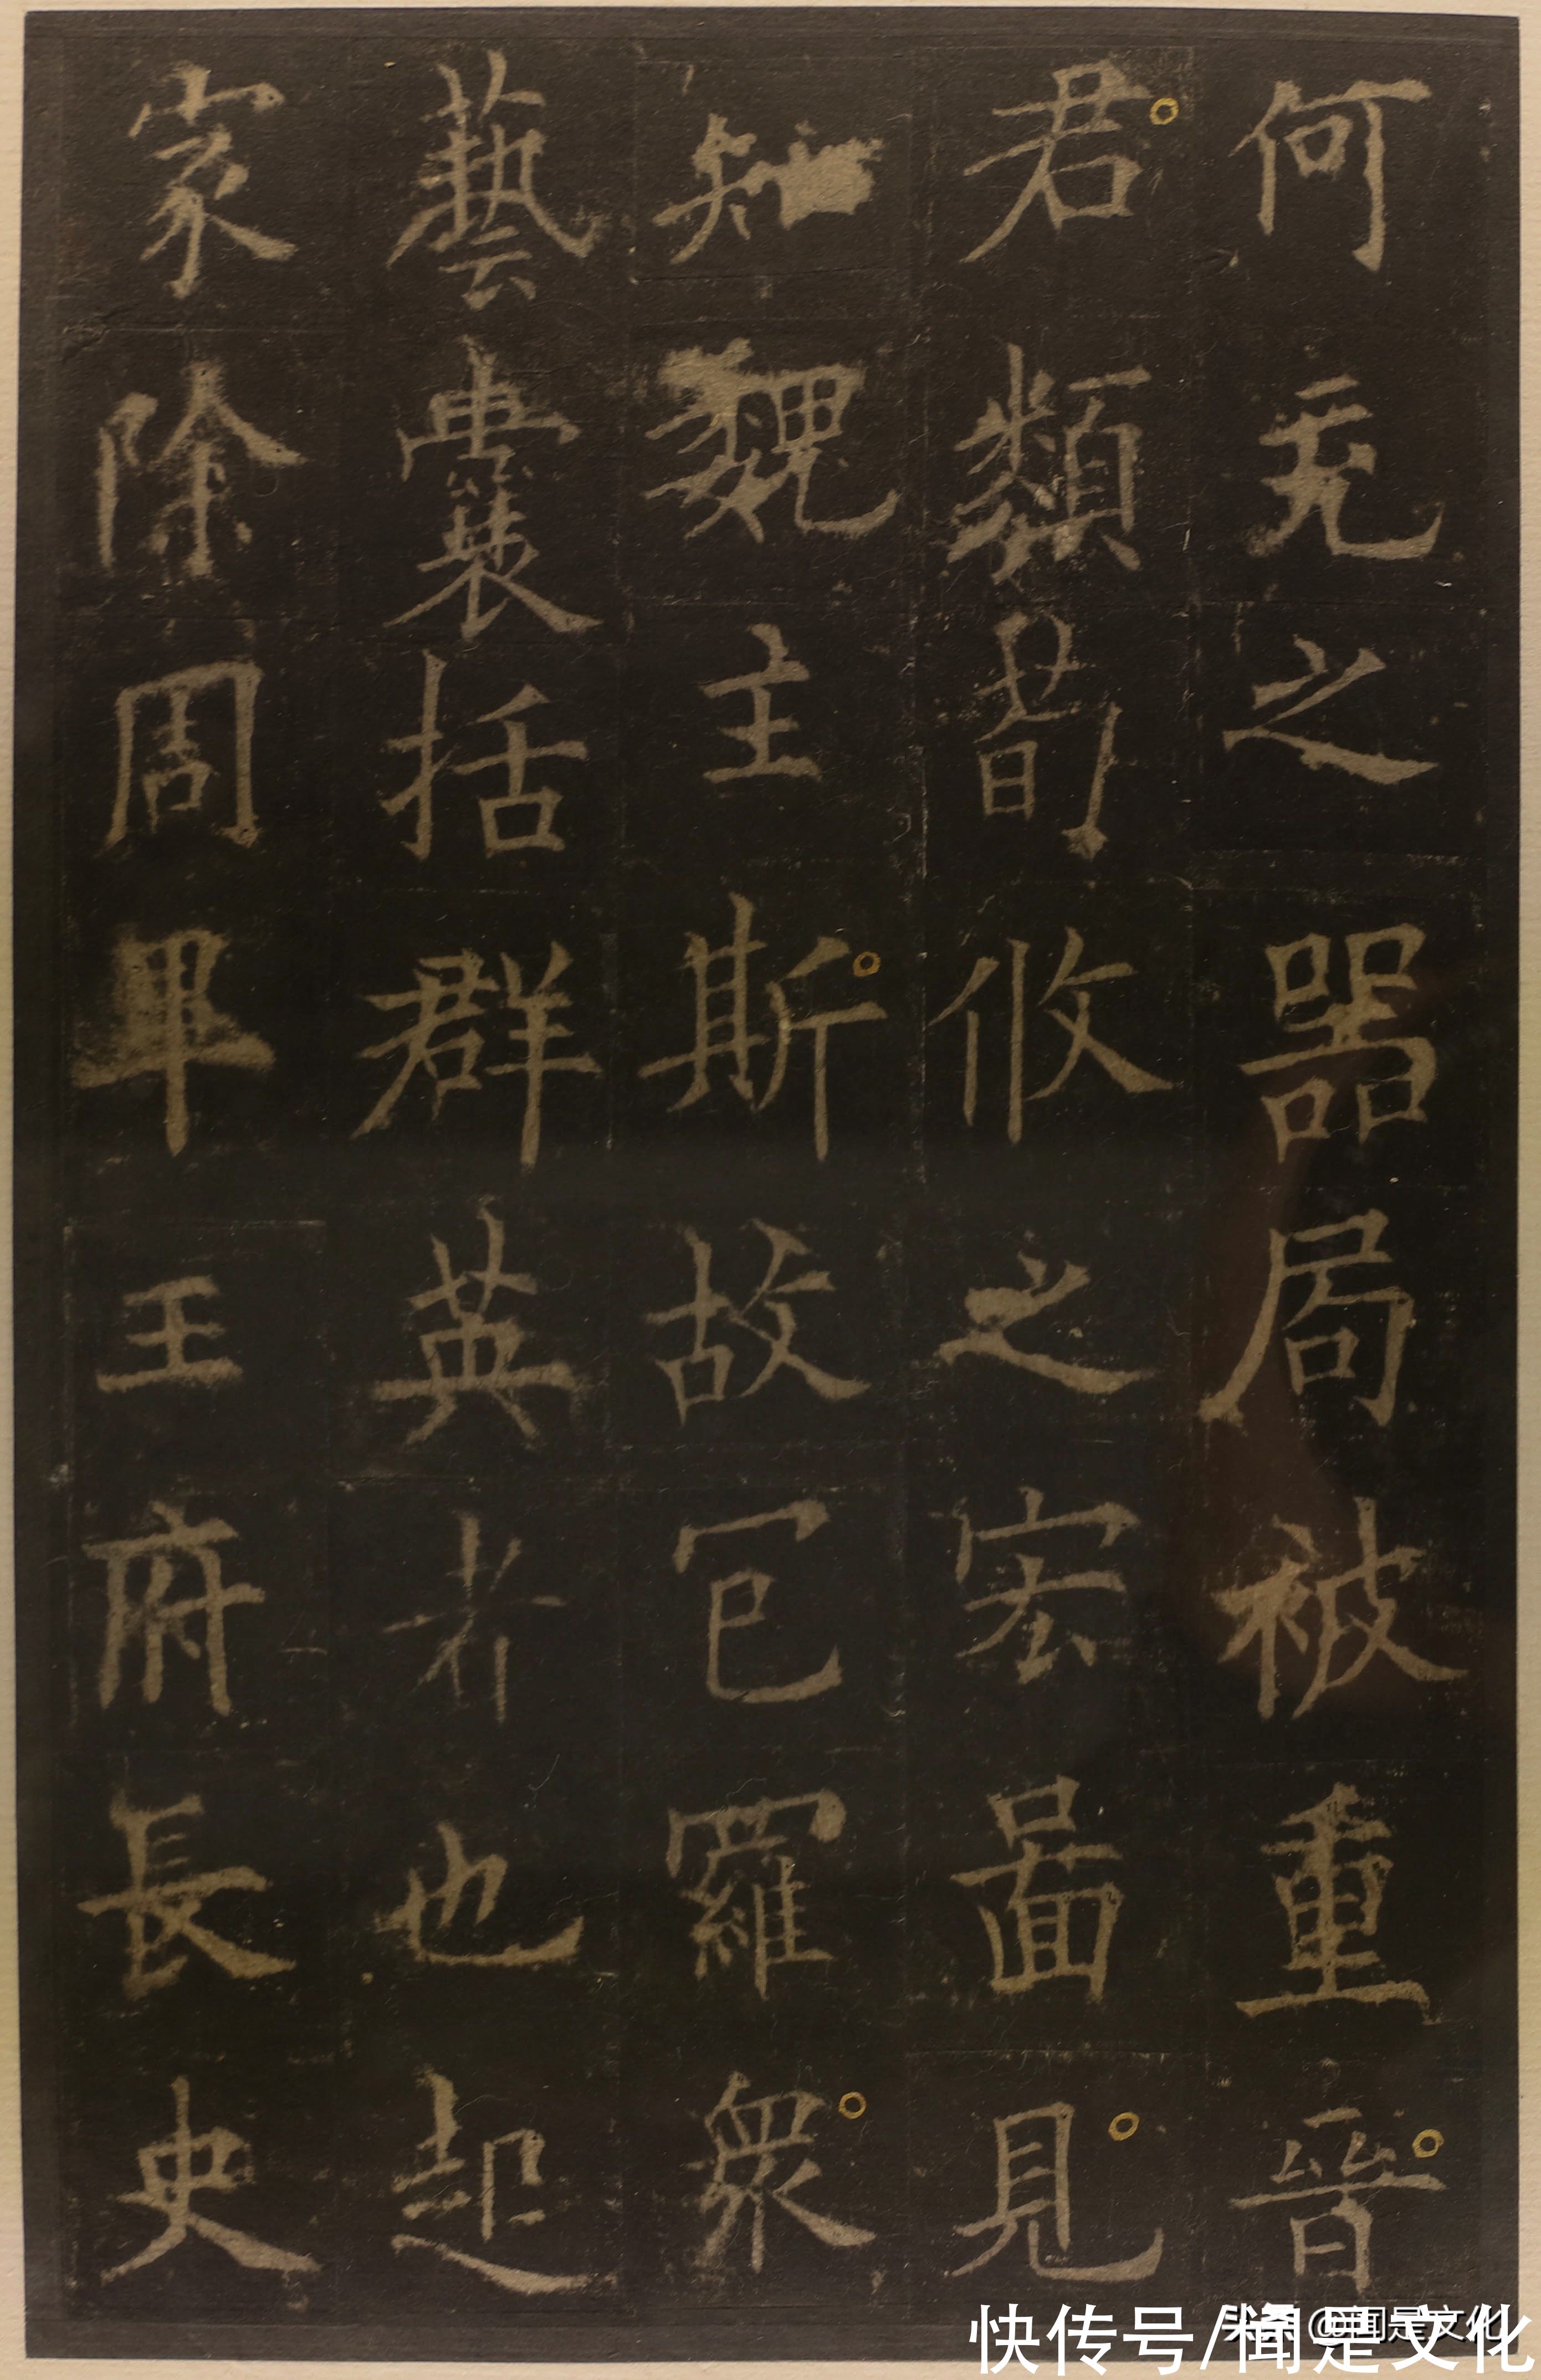 何充之器局被重晉
君類荀攸之宏圖見
知魏主斯故包羅眾
藝囊括群英者也起
家除周畢王府長史
快传号/闻是文化